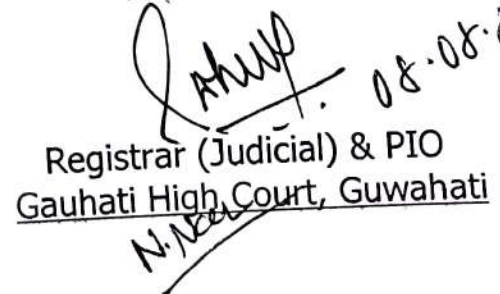 08.08.
Registrar (Judicial) & PIO
Gauhati High Court, Guwahati